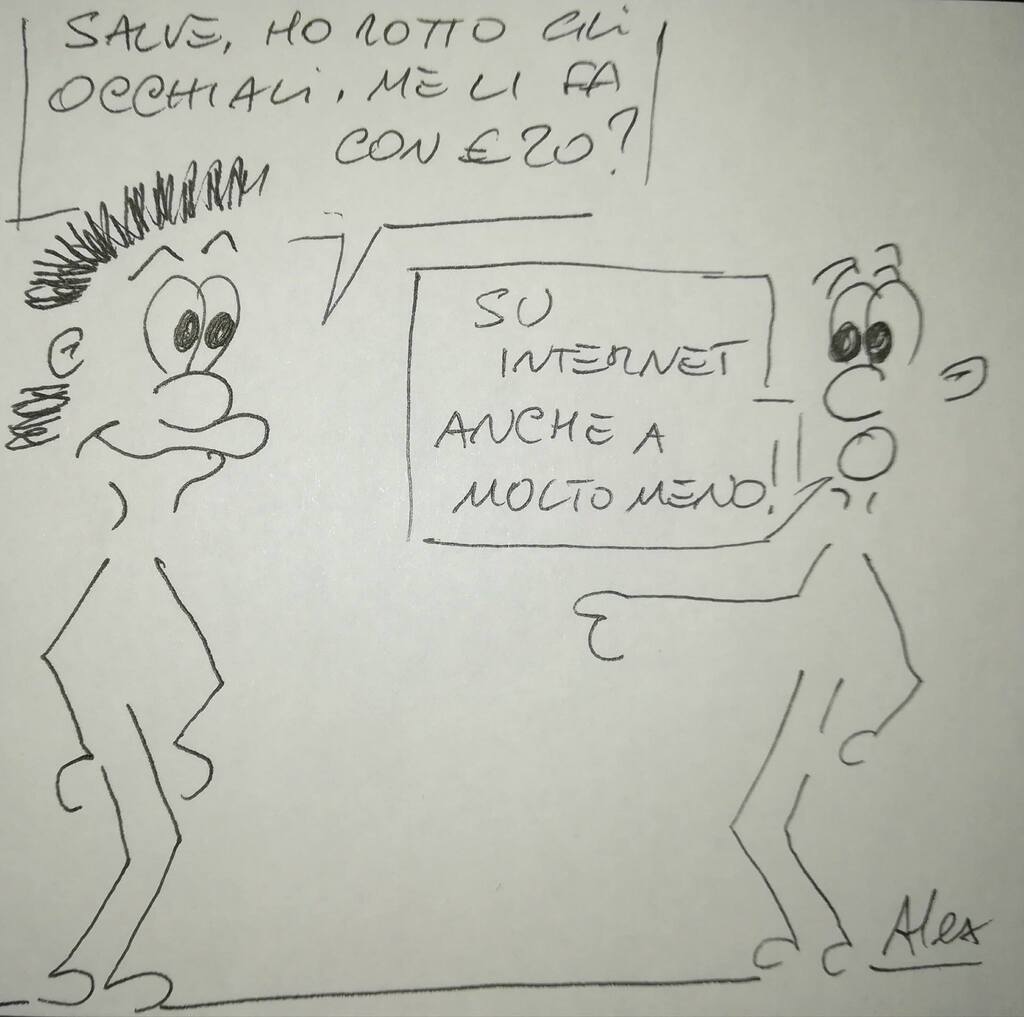 SALVE, HO ROTTO GLI
OCCHIALI. ME LI FA
CON € 20?
SU
INTERNET
ANCHE A
MOLTO MENO!!
Alex